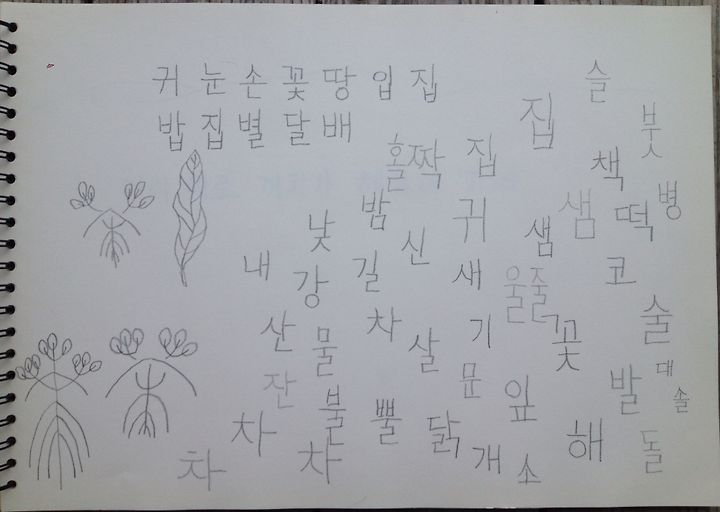 귀 눈 손 꽃 땅 입 집
밥 집 별 달 배
슬
집
붓
홀짝
집
책
병
밤
낮
신
귀
샘
샘
떡
내
강
길
새
울줄
코
산
물
차
살
기
꽃
술
잔
불
뿔
문
잎
발
대
솔
차
차
차
닭
개
소
해
돌